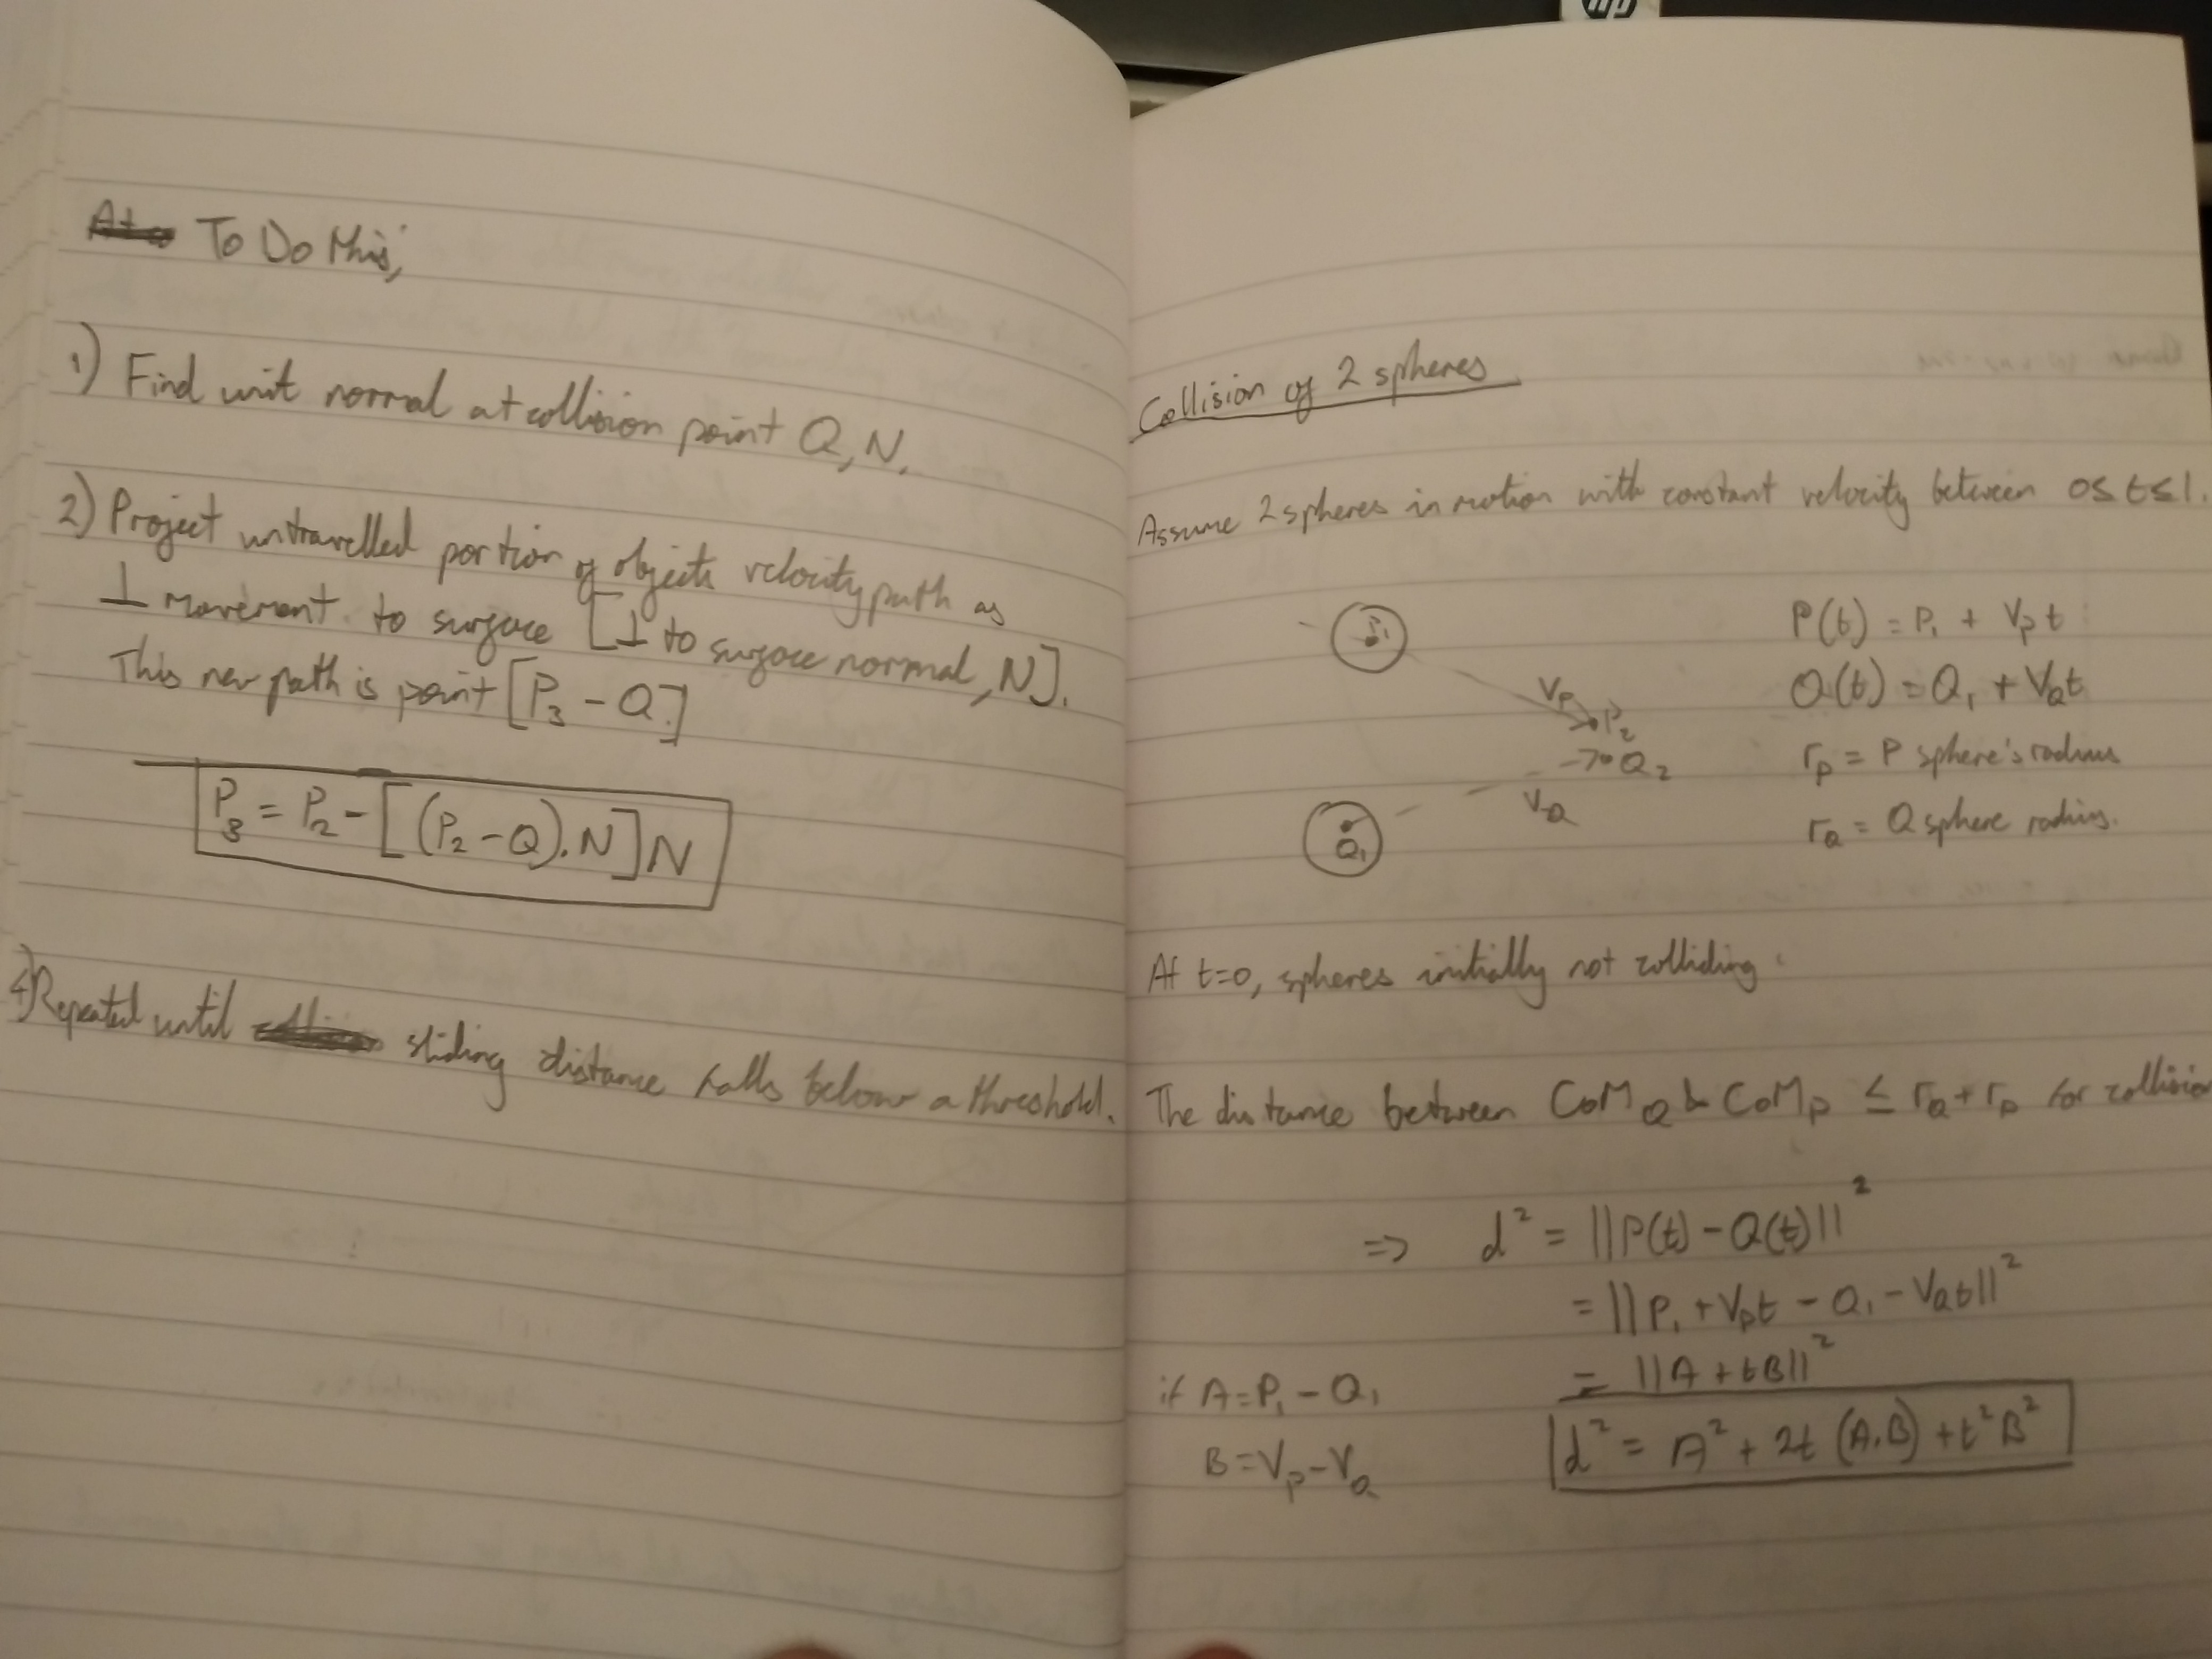 To Do this;
1) Find unit normal at collision point Q, N.
2) Project untravelled portion of objects velocity path as
⊥ movement to surface [⊥ to surface normal, N].
This new path is point [P₃ - Q]
P₃ = P₂ - [(P₂ - Q).N]N
Repeated until sliding distance falls below a threshold.
hp
Collision of 2 spheres
Assume 2 spheres in motion with constant velocity between 0≤t≤1.
P₁
V_P
P₂
Q₂
V_Q
Q₁
P(t) = P₁ + V_P t
Q(t) = Q₁ + V_Q t
r_P = P sphere's radius
r_Q = Q sphere radius.
At t=0, spheres initially not colliding.
The distance between CoM_Q & CoM_P ≤ r_Q + r_P for collision
=> d² = ||P(t) - Q(t)||²
= ||P₁ + V_P t - Q₁ - V_Q t||²
if A = P₁ - Q₁
= ||A + tB||²
B = V_P - V_Q
d² = A² + 2t (A.B) + t²B²